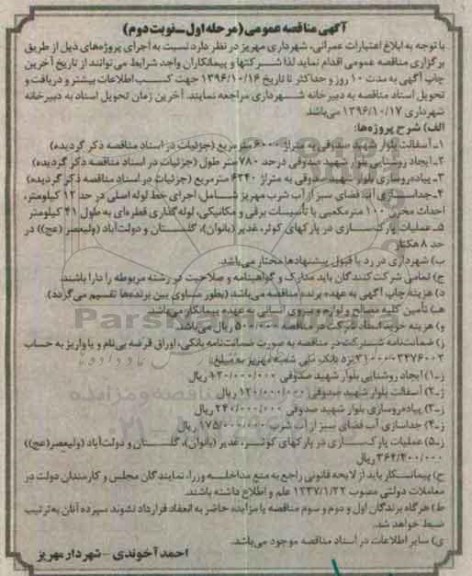 آگهی مناقصه عمومی (مرحله اول - نوبت دوم)
با توجه به ابلاغ اعتبارات عمرانی، شهرداری مهریز در نظر دارد نسبت به اجرای پروژه‌های ذیل از طریق
برگزاری مناقصه عمومی اقدام نماید لذا شرکتها و پیمانکاران واجد شرایط می توانند از تاریخ آخرین
چاپ آگهی به مدت ۱۰ روز و حداکثر تا تاریخ ۱۳۹۶/۱۰/۱۶ جهت کسب اطلاعات بیشتر و دریافت و
تحویل اسناد مناقصه به دبیرخانه شهرداری مراجعه نمایند. آخرین زمان تحویل اسناد به دبیرخانه
شهرداری ۱۳۹۶/۱۰/۱۷ می‌باشد.
الف) شرح پروژه‌ها:
۱- آسفالت بلوار شهید صدوقی به متراژ ۶۰۰۰ متر مربع (جزئیات در اسناد مناقصه ذکر گردیده)
۲- ایجاد روشنایی بلوار شهید صدوقی در حد ۷۸۰ متر طول (جزئیات در اسناد مناقصه ذکر گردیده)
۳- پیاده‌روسازی بلوار شهید صدوقی به متراژ ۶۲۴۰ متر مربع (جزئیات در اسناد مناقصه ذکر گردیده)
۴- جداسازی آب فضای سبز از آب شرب مهریز شامل: اجرای خط لوله اصلی در حد ۱۲ کیلومتر،
احداث مخزن ۱۰۰ مترمکعبی با تأسیسات برقی و مکانیکی، لوله‌گذاری قطره‌ای به طول ۴۱ کیلومتر
۵- عملیات پارک‌سازی در پارکهای کوثر، غدیر (بانوان)، گلستان و دولت‌آباد (ولیعصر (عج)) در
حد ۸ هکتار
ب) شهرداری در رد یا قبول پیشنهادها مختار می‌باشد.
ج) تمامی شرکت‌کنندگان باید مدارک و گواهینامه و صلاحیت در رشته مربوطه را دارا باشند.
د) هزینه چاپ آگهی به عهده برنده مناقصه می‌باشد (بطور مساوی بین برنده‌ها تقسیم می‌گردد).
هـ) تأمین کلیه مصالح و لوازم و نیروی انسانی به عهده پیمانکار می‌باشد.
و) هزینه خرید اسناد شرکت در مناقصه ۵۰۰/۰۰۰ ریال می‌باشد.
ز) ضمانت‌نامه شرکت در مناقصه به صورت ضمانت‌نامه بانکی، اوراق قرضه بی‌نام و یا واریز به حساب
نزد بانک ملی شعبه مهریز به مبلغ:
ز-۱) ایجاد روشنایی بلوار شهید صدوقی ۴۲۰/۰۰۰/۰۰۰ ریال
ز-۲) آسفالت بلوار شهید صدوقی ۱۲۰/۰۰۰/۰۰۰ ریال
ز-۳) پیاده‌روسازی بلوار شهید صدوقی ۲۴۰/۰۰۰/۰۰۰ ریال
ز-۴) جداسازی آب فضای سبز از آب شرب ۱۷۵/۰۰۰/۰۰۰ ریال
ز-۵) عملیات پارک‌سازی در پارکهای کوثر، غدیر (بانوان)، گلستان و دولت‌آباد (ولیعصر(عج))
۳۶۴/۴۰۰/۰۰۰ ریال
ح) پیمانکار باید از لایحه قانونی راجع به منع مداخله وزرا، نمایندگان مجلس و کارمندان دولت در
معاملات دولتی مصوب ۱۳۳۷/۱/۲۲ علم و اطلاع داشته باشند.
ط) هرگاه برندگان اول و دوم و سوم مناقصه یا مزایده حاضر به انعقاد قرارداد نشوند سپرده آنان به ترتیب
ضبط خواهد شد.
ی) سایر اطلاعات در اسناد مناقصه موجود می‌باشد.
احمد آخوندی - شهردار مهریز